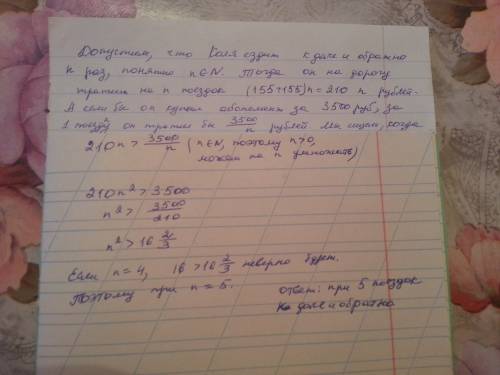 Допустим, что Коля ездит к даче и обратно
n раз, понятно n∈N. Тогда он на дорогу
тратит на n поездок (155+155)n = 210 n рублей.
А если бы он купил абонемент за 3500 руб, за
1 поездку он тратил бы 3500/n рублей Мы ищем, когда
210n > 3500/n (n∈N, поэтому n>0,
можем на n умножать)
210n² > 3500
n² > 3500/210
n² > 16 2/3
Если n = 4, 16 > 16 2/3 неверно будет.
Поэтому при n = 5.
Ответ: при 5 поездок
к даче и обратно